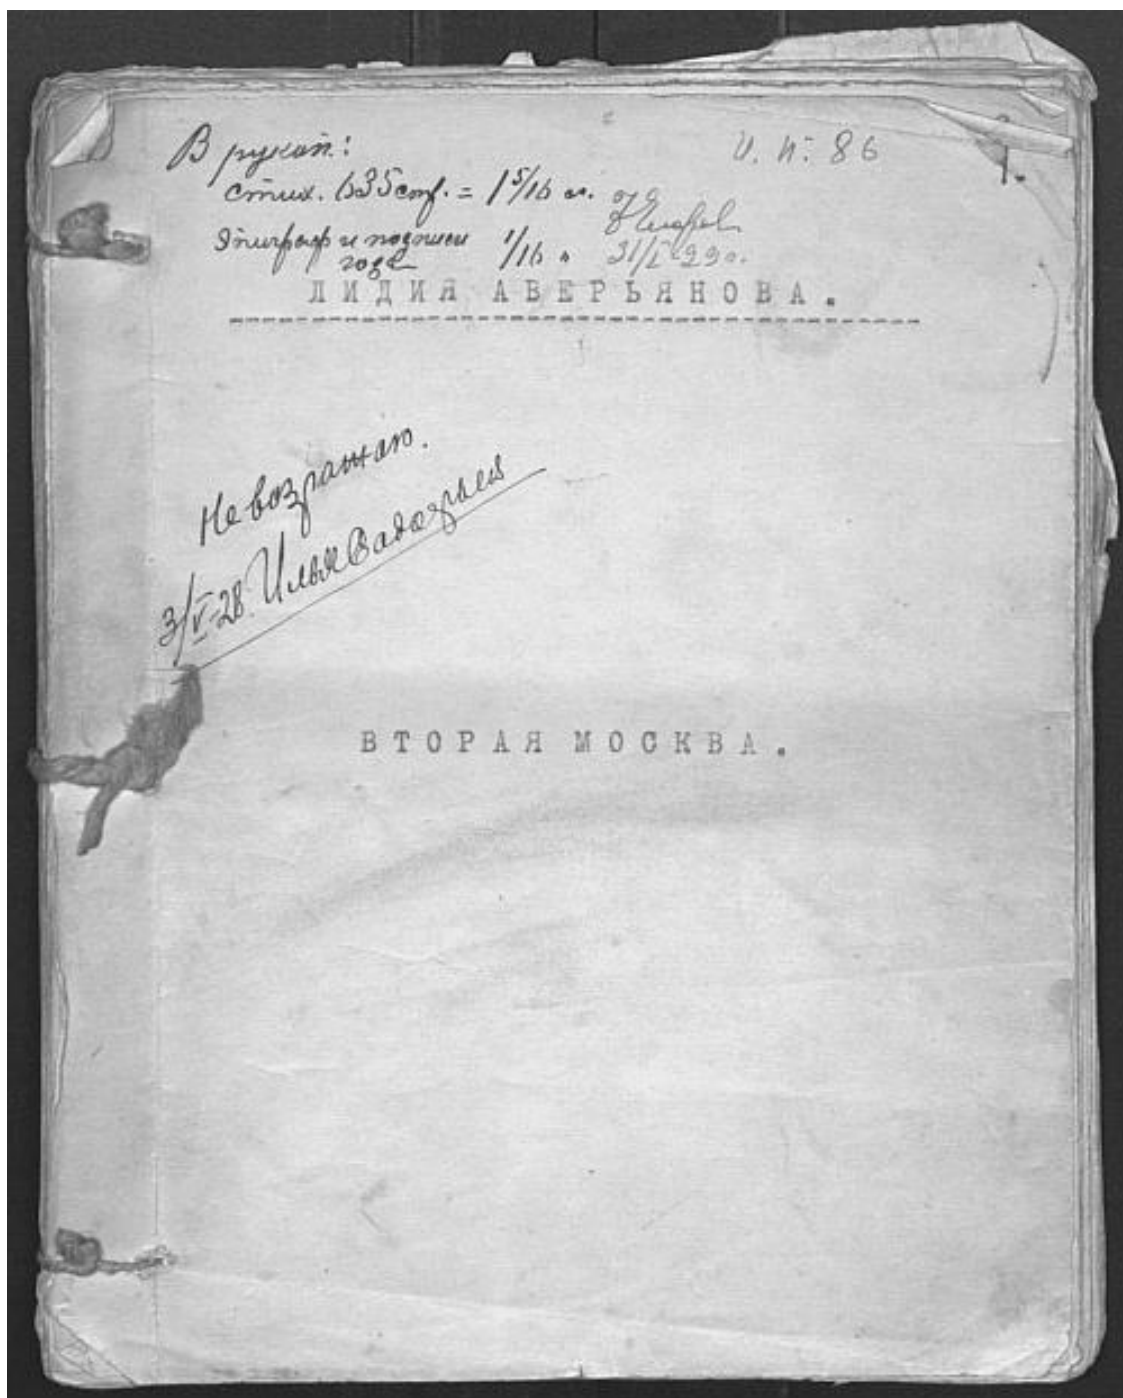 В рукоп.:
И. П. 86
1.
стих. 635 стр. = 1 5/16 л.
Эпиграф и подписи 1/16 " 31/I-29 г.
года
ЛИДИЯ АВЕРЬЯНОВА.
Не возражаю.
3/V-28. Илья Садофьев
ВТОРАЯ МОСКВА.